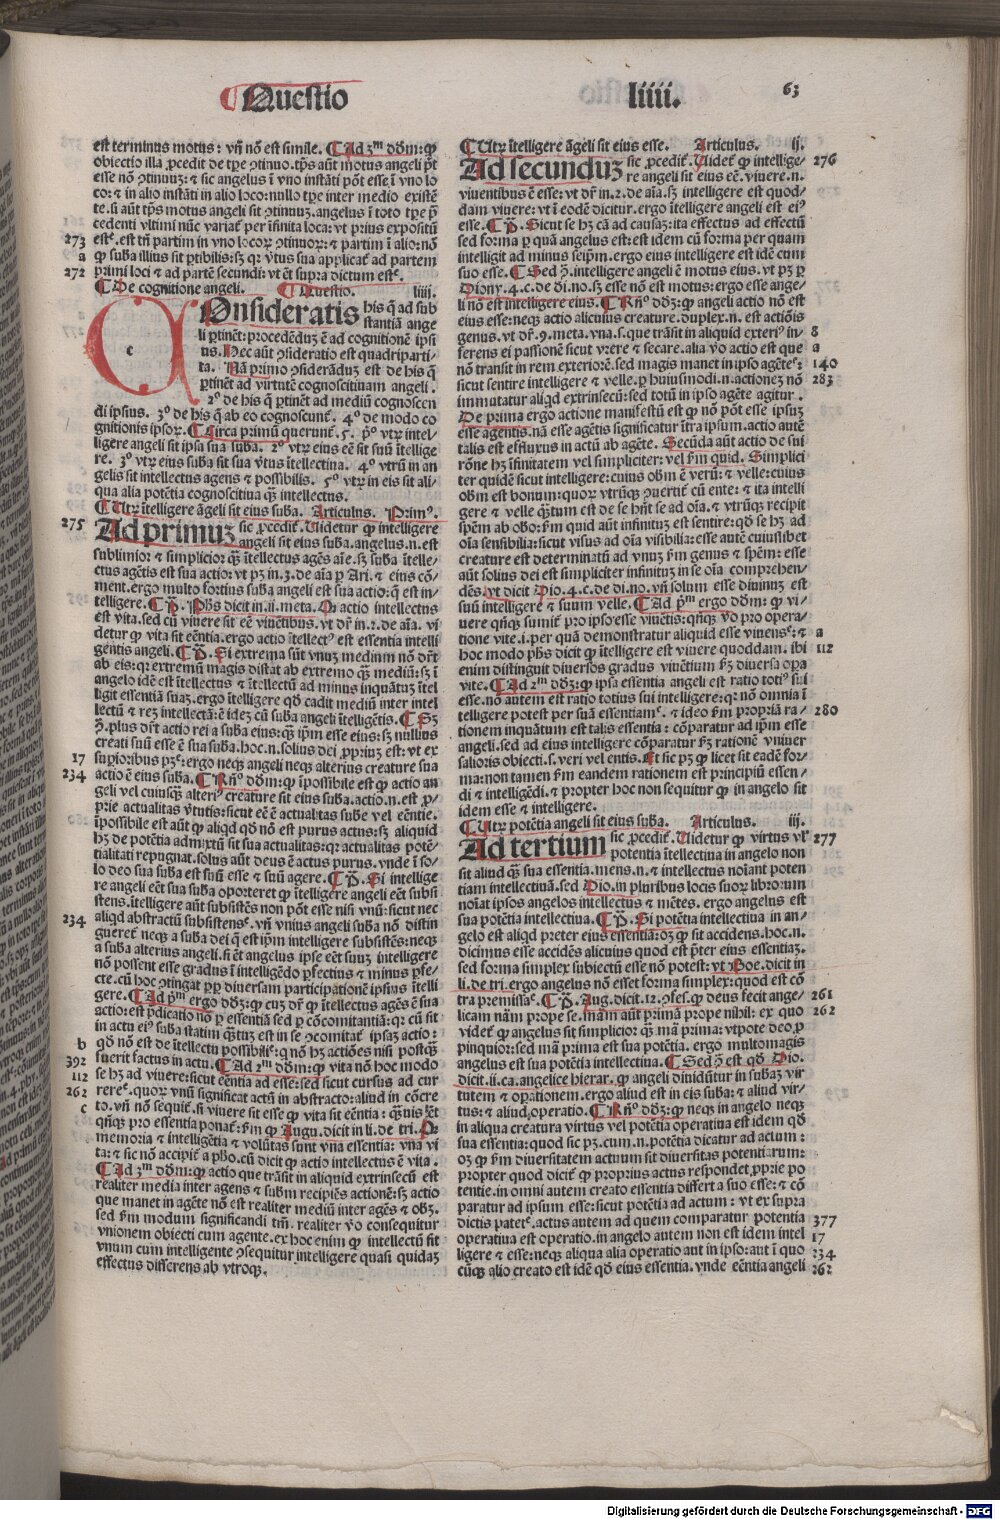 Questio
liiii.
63
est terminus motus: vñ nõ est simile. ¶ Ad 3ᵐ dõm: ꝙ
obiectio illa ꝓcedit de tpe ↄtinuo. tps aũt motus angeli põt
esse nõ ↄtinuũ: ⁊ sic angelus ĩ vno instãti põt esse ĩ vno lo
co: ⁊ in alio instãti in alio loco: nullo tpe inter medio existẽ
te. si aũt tps motus angeli sit ↄtinuũ. angelus ĩ toto tpe p̃
cedenti vltimũ nũc variat per ĩfinita loca: vt prius expositũ
273 est. est tñ partim in vno locoꝝ ↄtinuoꝝ: ⁊ partim ĩ alio: nõ
a ꝙ suba illius sit ptibilis: sꝫ qꝛ vtus sua applicat ad partem
272 primi loci ⁊ ad partẽ secundi: vt ẽt supra dictum est.
¶ De cognitione angeli. ¶ Questio. liiii.
c
COnsideratis his q̃ ad sub
stantiã ange
li ꝑtinẽt: procedẽdũ ẽ ad cognitionẽ ipsi
us. Hec aũt ↄsideratio est quadriparti-
ta. Nã primo ↄsiderãdũ est de his q̃
ꝑtinẽt ad virtutẽ cognoscitiuam angeli.
2º de his q̃ ꝑtinẽt ad mediũ cognoscen
di ipsius. 3º de his q̃ ab eo cognoscunt. 4º de modo co
gnitionis ipsoꝝ. ¶ Circa primũ querunt. 5. pº vtꝝ intel-
ligere angeli sit ipsa sua suba. 2º vtꝝ eius eẽ sit suũ ĩtellige
re. 3º vtꝝ eius suba sit sua vtus ĩtellectina. 4º vtrũ in an
gelis sit intellectus agens ⁊ possibilis. 5º vtꝝ in eis sit ali-
qua alia potẽtia cognoscitiua q̃ꝫ intellectus.
¶ Utrꝫ ĩtelligere ãgeli sit eius suba. Articulus. Primꝰ.
275 Ad primuꝫ sic ꝓcedit. Uidetur ꝙ intelligere
angeli sit eius suba. angelus.n.est
sublimior ⁊ simplicior q̃ꝫ ĩtellectus agẽs aĩe. sꝫ suba ĩtelle-
ctus agẽtis est sua actio: vt pꝫ in.3.de aĩa ꝑ Ari. ⁊ eius cõ-
ment. ergo multo fortius suba angeli est sua actio: q̃ est in-
telligere. ¶ P̃. Phs dicit in.ii.meta. Q actio intellectus
est vita. sed cũ viuere sit eẽ viuẽtibus. vt dr̃ in.2.de aĩa. vi
detur ꝙ vita sit eẽntia. ergo actio ĩtellectꝰ est essentia intelli
gentis angeli. ¶ P̃. Si extrema sũt vnuꝫ mediũ nõ dr̃t
ab eis: qꝛ extremũ magis distat ab extremo q̃ꝫ mediũ: sꝫ ĩ
angelo idẽ est ĩtellectus ⁊ ĩtellectũ ad minus inquãtuꝫ ĩtel
ligit essentiã suaꝫ. ergo ĩtelligere qd̃ cadit mediũ inter intel
lectũ ⁊ reꝫ intellectã: ẽ ideꝫ cũ suba angeli ĩtelligẽtis. ¶ Sꝫ
ↄ̃. plus dr̃t actio rei a suba eius: q̃ꝫ ip̃m esse eius: sꝫ nullius
creati suũ esse ẽ sua suba. hoc.n.solius dei ꝓpriuꝫ est: vt ex
17 supioribus pꝫ: ergo neqꝫ angeli neqꝫ alterius creature sua
234 actio ẽ eius suba. ¶ Rñº dõm: ꝙ ĩpossibile est ꝙ actio an
geli vel cuiusqꝫ alterꝰ creature sit eius suba. actio.n.est ꝓ-
prie actualitas vtutis: sicut eẽ ẽ actualitas sube vel eẽntie.
ĩpossibile est aũt ꝙ aliqd qd̃ nõ est purus actus: sꝫ aliquid
hꝫ de potẽtia admixtũ sit sua actualitas: qꝛ actualitas potẽ-
tialitati repugnat. solus aũt deus ẽ actus purus. vnde ĩ so-
lo deo sua suba est suũ esse ⁊ suũ agere. ¶ P̃. Si intellige
re angeli eẽt sua suba oporteret ꝙ ĩtelligere angeli eẽt subsi
stens. ĩtelligere aũt subsistẽs non põt esse nisi vnũ: sicut nec
234 aliqd abstractũ subsistens. vñ vnius angeli suba nõ distin
gueret neqꝫ a suba dei q̃ est ip̃m intelligere subsistẽs: neqꝫ
a suba alterius angeli. si ẽt angelus ipse eẽt suuꝫ intelligere
nõ possent esse gradus ĩ intelligẽdo ꝑfectius ⁊ minus ꝑfe-
cte. cũ hoc ↄtingat ꝓꝑ diuersam participationẽ ipsius ĩtelli
gere. ¶ Ad pᵐ ergo dõꝫ: ꝙ cuꝫ dr̃ ꝙ ĩtellectus agẽs ẽ sua
actio: est p̃dicatio nõ ꝑ essentiã sed ꝑ cõcomitantiã: qꝛ cũ sit
in actu eiꝰ suba statim q̃ꝫtuꝫ est in se ↄcomitat ipsaꝫ actio:
b qd̃ nõ est de ĩtellectu possibili: q̃ nõ hꝫ actiões nisi postq̃ꝫ
392 fuerit factus in actu. ¶ Ad 2ᵐ dõm: ꝙ vita nõ hoc modo
112 se hꝫ ad viuere: sicut eẽntia ad esse: sed sicut cursus ad cur
262 rere. quoꝝ vnũ significat actũ in abstracto: aliud in cõcre
c to. vñ nõ sequit. si viuere sit esse ꝙ vita sit eẽntia: q̃uis ẽt
qñqꝫ pro essentia ponat: fm ꝙ Augu. dicit in li. de tri. Q
memoria ⁊ intelligẽtia ⁊ volũtas sunt vna essentia: vna vi
ta: ⁊ sic nõ accipit a pho. cũ dicit ꝙ actio intellectus ẽ vita.
¶ Ad 3ᵐ dõm: ꝙ actio que trãsit in aliquid extrinsecũ est
realiter media inter agens ⁊ subm recipiẽs actionẽ: sꝫ actio
que manet in agẽte nõ est realiter mediũ inter agẽs ⁊ obꝫ.
sed fm modum significandi tm̃. realiter vo consequitur
vnionem obiecti cum agente. ex hoc enim ꝙ intellectũ fit
vnum cum intelligente ↄsequitur intelligere quasi quidaꝫ
effectus differens ab vtroqꝫ.
¶ Utrꝫ ĩtelligere ãgeli sit eius esse. Articulus. ij.
Ad secunduꝫ sic ꝓcedit. Uidet ꝙ intellige- 276
re angeli sit eius eẽ. viuere.n.
viuentibus ẽ esse: vt dr̃ in.2.de aĩa. sꝫ intelligere est quod-
dam viuere: vt ĩ eodẽ dicitur. ergo ĩtelligere angeli est eiꝰ
esse. ¶ P̃. Sicut se hꝫ cã ad causaꝫ: ita effectus ad effectũ
sed forma ꝑ quã angelus est: est idem cũ forma per quam
intelligit ad minus seip̃m. ergo eius intelligere est idẽ cum
suo esse. ¶ Sed ↄ̃. intelligere angeli ẽ motus eius. vt pꝫ ꝑ
Diony.4.c.de di.no.sꝫ esse nõ est motus: ergo esse ange-
li nõ est intelligere eius. ¶ Rñº dõꝫ: ꝙ angeli actio nõ est
eius esse: neqꝫ actio alicuius creature. duplex.n.est actiõis
genus. vt dr̃.9.meta.vna.s.que trãsit in aliquid exteriꝰ in- 8
ferens ei passionẽ sicut vrere ⁊ secare. alia vo actio est que a
nõ transit in rem exteriorẽ. sed magis manet in ipso agẽte: 140
sicut sentire intelligere ⁊ velle. ꝑ huiusmodi.n.actioneꝫ nõ 283
immutatur aliqd extrinsecũ: sed totũ in ipso agẽte agitur.
De prima ergo actione manifestũ est ꝙ nõ põt esse ipsuꝫ
esse agentis. nã esse agẽtis significatur ĩtra ipsum. actio autẽ
talis est effluxus in actũ ab agẽte. Secũda aũt actio de sui
rõne hꝫ ĩfinitatem vel simpliciter: vel fm quid. Simplici
ter quidẽ sicut intelligere: cuius obm ẽ verũ: ⁊ velle: cuius
obm est bonum: quoꝝ vtrũqꝫ ↄuertit cũ ente: ⁊ ita intelli
gere ⁊ velle q̃ꝫtum est de se hñt se ad oĩa. ⁊ vtrũqꝫ recipit
spẽm ab obo: fm quid aũt infinitũ est sentire: qd̃ se hꝫ ad
oĩa sensibilia: sicut visus ad oĩa visibilia: esse autẽ cuiuslibet
creature est determinatũ ad vnuꝫ fm genus ⁊ spẽm: esse
aũt solius dei est simpliciter infinitũ in se oĩa comprehen-
dẽs. vt dicit Dio.4.c.de di.no.vñ solum esse diuinuꝫ est
suũ intelligere ⁊ suum velle. ¶ Ad pᵐ ergo dõm: ꝙ vi-
uere qñqꝫ sumit pro ipso esse viuẽtis: qñqꝫ vo pro opera-
tione vite.i.per quã demonstratur aliquid esse viuens: ⁊ a
hoc modo phs dicit ꝙ ĩtelligere est viuere quoddam. ibi 112
enim distinguit diuersos gradus viuẽtium fꝫ diuersa opa
vite. ¶ Ad 2ᵐ dõꝫ: ꝙ ipsa essentia angeli est ratio totiꝰ sui
esse. nõ autem est ratio totius sui intelligere: qꝛ nõ omnia ĩ
telligere potest per suã essentiam. ⁊ ideo fm propriã ra- 280
tionem inquãtum est talis essentia: cõparatur ad ip̃m esse
angeli. sed ad eius intelligere cõparatur fꝫ rationẽ vniuer
salioris obiecti.s.veri vel entis. Et sic pꝫ ꝙ licet sit eadẽ for-
ma: non tamen fm eandem rationem est principiũ essen-
di ⁊ intelligẽdi. ⁊ propter hoc non sequitur ꝙ in angelo sit
idem esse ⁊ intelligere.
¶ Utrꝫ potẽtia angeli sit eius suba. Articulus. iij.
Ad tertium sic ꝓcedit. Uidetur ꝙ virtus vl̃ 277
potentia ĩtellectina in angelo non
sit aliud q̃ꝫ sua essentia. mens.n.⁊ intellectus noĩant poten
tiam intellectiuã. sed Dio.in pluribus locis suoꝝ librorum
noĩat ipsos angelos intellectus ⁊ mẽtes. ergo angelus est
sua potẽtia intellectiua. ¶ P̃. Si potẽtia intellectiua in an-
gelo est aliqd preter eius essentiã: oꝫ ꝙ sit accidens. hoc.n.
dicimus esse accidẽs alicuius quod est p̃ter eius essentiaꝫ.
sed forma simplex subiectũ esse nõ potest: vt Boe. dicit in
li.de tri. ergo angelus nõ esset forma simplex: quod est cõ
tra premissa. ¶ P̃. Aug. dicit.12.ↄfes. ꝙ deus fecit ange- 261
licam nãm prope se. mãm aũt primã prope nihil: ex quo 262
videt ꝙ angelus sit simplicior q̃ꝫ mã prima: vtpote deo ꝓ
pinquior: sed mã prima est sua potẽtia. ergo multomagis
angelus est sua potẽtia intellectina. ¶ Sed ↄ̃ est qd̃ Dio.
dicit.ii.ca.angelice hierar. ꝙ angeli diuidũtur in subaꝫ vir
tutem ⁊ opationem. ergo aliud est in eis suba: ⁊ aliud vir-
tus: ⁊ aliud operatio. ¶ Rñº dõꝫ: ꝙ neqꝫ in angelo neqꝫ
in aliqua creatura virtus vel potẽtia operatiua est idem qd̃
sua essentia: quod sic pꝫ. cum.n.potẽtia dicatur ad actum:
oꝫ ꝙ fm diuersitatem actuum sit diuersitas potentiarum:
propter quod dicit ꝙ proprius actus respondet ꝓprie po
tentie. in omni autem creato essentia differt a suo esse: ⁊ cõ
paratur ad ipsum esse: sicut potẽtia ad actum: vt ex supra
dictis patet. actus autem ad quem comparatur potentia 377
operatiua est operatio. in angelo autem non est idem intel 17
ligere ⁊ esse: neqꝫ aliqua alia operatio aut in ipso: aut ĩ quo 234
cũqꝫ alio creato est idẽ qd̃ eius essentia. vnde eẽntia angeli 262
Digitalisierung gefördert durch die Deutsche Forschungsgemeinschaft - DFG